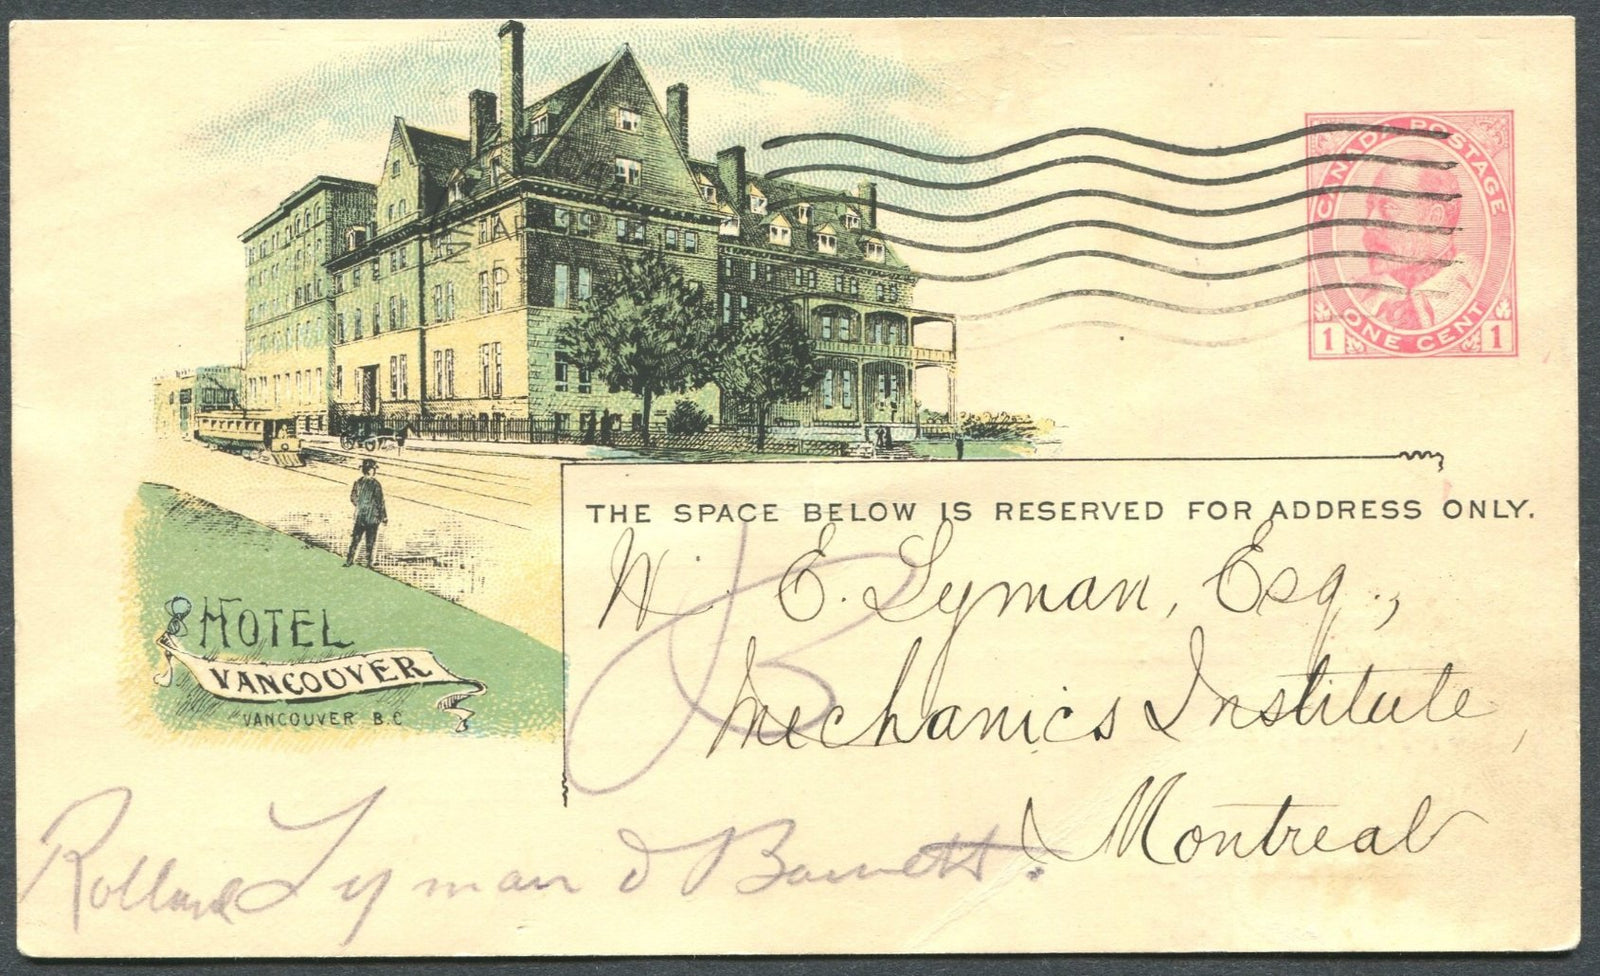 CANADA POSTAGE
ONE CENT
1 1
THE SPACE BELOW IS RESERVED FOR ADDRESS ONLY.
W. E. Lyman, Esq.,
Mechanics Institute,
Montreal
HOTEL
VANCOUVER
VANCOUVER B.C
Rolland Lyman & Burnett.